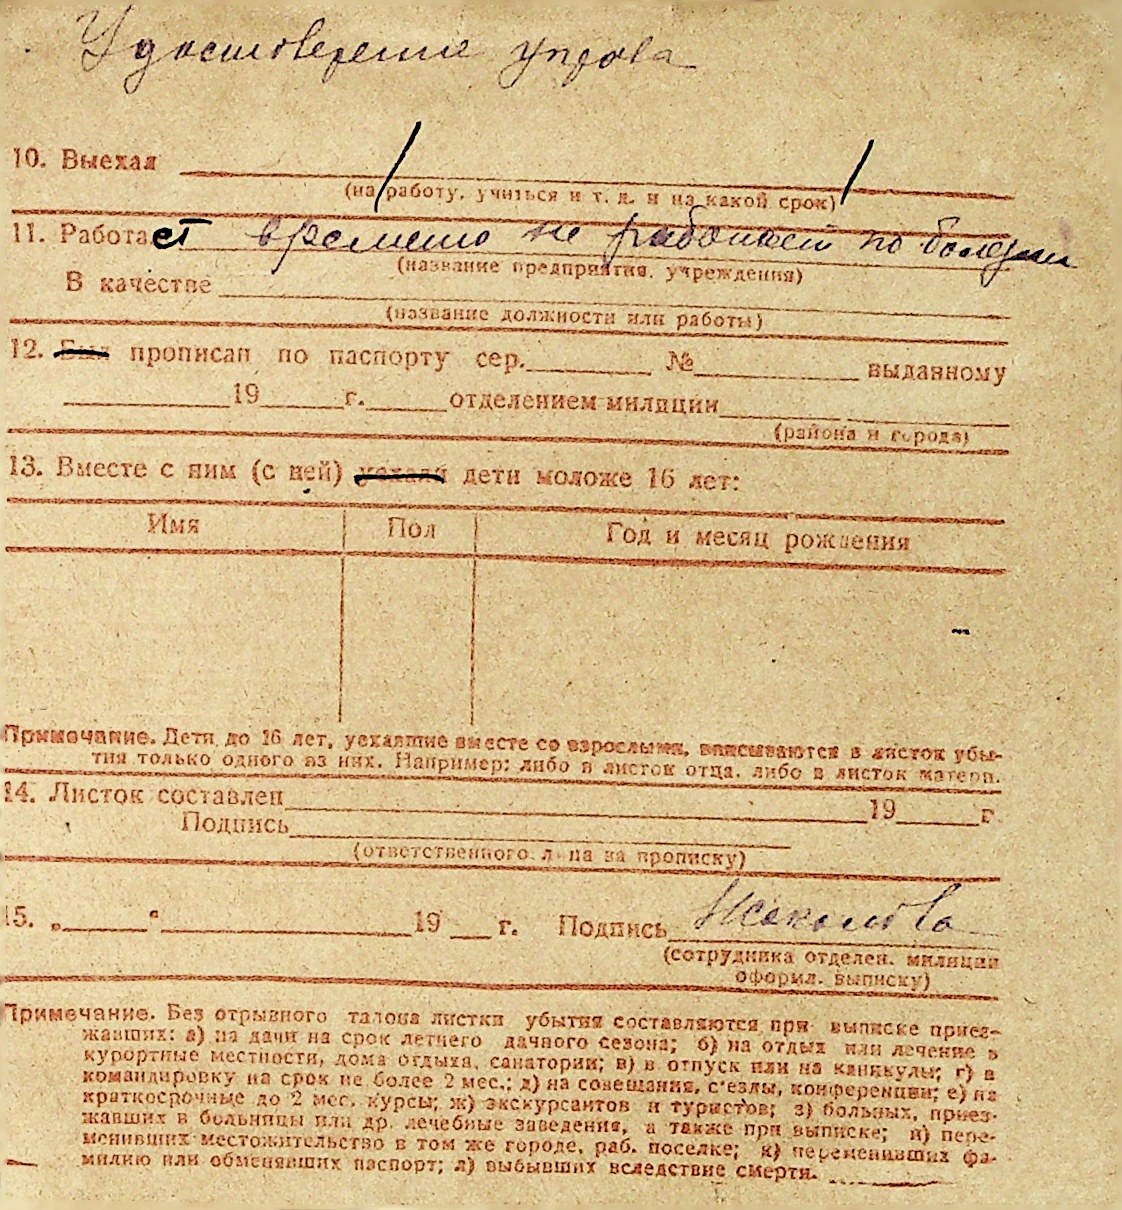 Удостоверение управа
10. Выехал
(на работу, учиться и т. д. и на какой срок)
11. Работает времено не работает по болезни
(название предприятия, учреждения)
В качестве
(название должности или работы)
12. Был прописан по паспорту сер. № выданному
19 г. отделением милиции
(района и города)
13. Вместе с ним (с ней) уехали дети моложе 16 лет:
Имя Пол Год и месяц рождения
Примечание. Дети до 16 лет, уехавшие вместе со взрослыми, вписываются в листок убы-
тия только одного из них. Например: либо в листок отца, либо в листок матери.
14. Листок составлен 19 г
Подпись
(ответственного л-ца за прописку)
15. „ “ 19 г. Подпись
(сотрудника отделен. милиции
оформ. выписку)
Примечание. Без отрывного талона листки убытия составляются при выписке приез-
жавших: а) на дачи на срок летнего дачного сезона; б) на отдых или лечение в
курортные местности, дома отдыха, санатории; в) в отпуск или на каникулы; г) в
командировку на срок не более 2 мес.; д) на совещания, с'езды, конференции; е) на
краткосрочные до 2 мес. курсы; ж) экскурсантов и туристов; з) больных, приез-
жавших в больницы или др. лечебные заведения, а также при выписке; и) пере-
менивших местожительство в том же городе, раб. поселке; к) переменивших фа-
милию или обменявших паспорт; л) выбывших вследствие смерти.